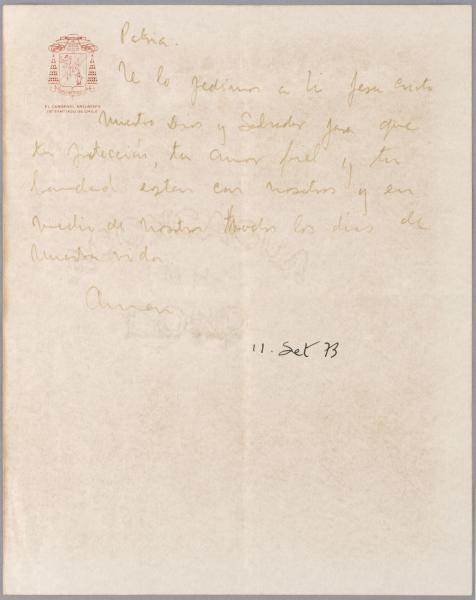 Patria.
Te lo pedimos a ti Jesu Cristo
EL CARDENAL ARZOBISPO
DE SANTIAGO DE CHILE
Nuestro Dios y Salvador para que
tu protección, tu amor fiel y tu
bondad esten con nosotros y en
medio de nosotros todos los días de
nuestra vida.
Amen
11. Set 73